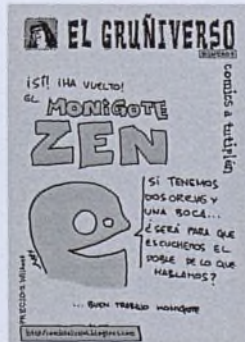 EL GRUÑIVERSO
comics a tutiplén
¡SÍ! ¡HA VUELTO!
EL MONIGOTE
ZEN
SI TENEMOS
DOS OREJAS Y
UNA BOCA...
¿SERÁ PARA QUE
ESCUCHEMOS EL
DOBLE DE LO QUE
HABLAMOS?
... BUEN TRABAJO MONIGOTE